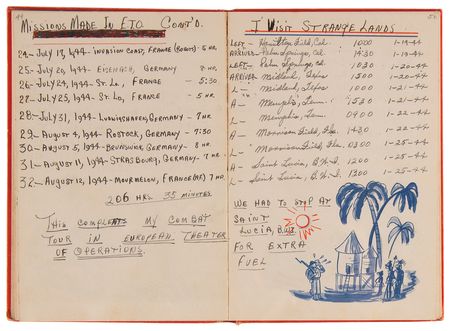 MISSIONS MADE IN E.T.O. CONT'D.
24 - JULY 19, 1944 - INVASION COAST, FRANCE - 5 HR.
25 - JULY 20, 1944 - EISENACH, GERMANY - 8 HR.
26 - JULY 24, 1944 - ST. LO, FRANCE - 5:30
27 - JULY 25, 1944 - ST. LO, FRANCE - 5 HR.
28 - JULY 31, 1944 - LUDWIGSHAFEN, GERMANY - 7 HR.
29 - AUGUST 4, 1944 - ROSTOCK, GERMANY - 7:30
30 - AUGUST 5, 1944 - BRUNSWICK, GERMANY - 8 HR.
31 - AUGUST 11, 1944 - STRASBOURG, GERMANY - 7 HR.
32 - AUGUST 12, 1944 - MOURMELON, FRANCE - 7 HR.
206 HRS. 35 MINUTES
THIS COMPLEATS MY COMBAT
TOUR IN EUROPEAN THEATER
OF OPERATIONS.
I VISIT STRANGE LANDS
LEFT - Hamilton Field, Cal. 1000 1-19-44
ARRIVED - Palm Springs, Cal. 1430 1-19-44
LEFT - Palm Springs, Cal. 1030 1-20-44
ARRIVED - Midland, Texas 1500 1-20-44
L - Midland, Texas 1000 1-21-44
A - Memphis, Tenn. 1530 1-21-44
L - Memphis, Tenn. 0900 1-22-44
A - Morrison Field, Fla. 1430 1-22-44
L - Morrison Field, Fla. 0300 1-25-44
A - Saint Lucia, B.W.I. 1200 1-25-44
L - Saint Lucia, B.W.I. 1300 1-25-44
WE HAD TO STOP AT
SAINT
LUCIA, B.W.I.
FOR EXTRA
FUEL